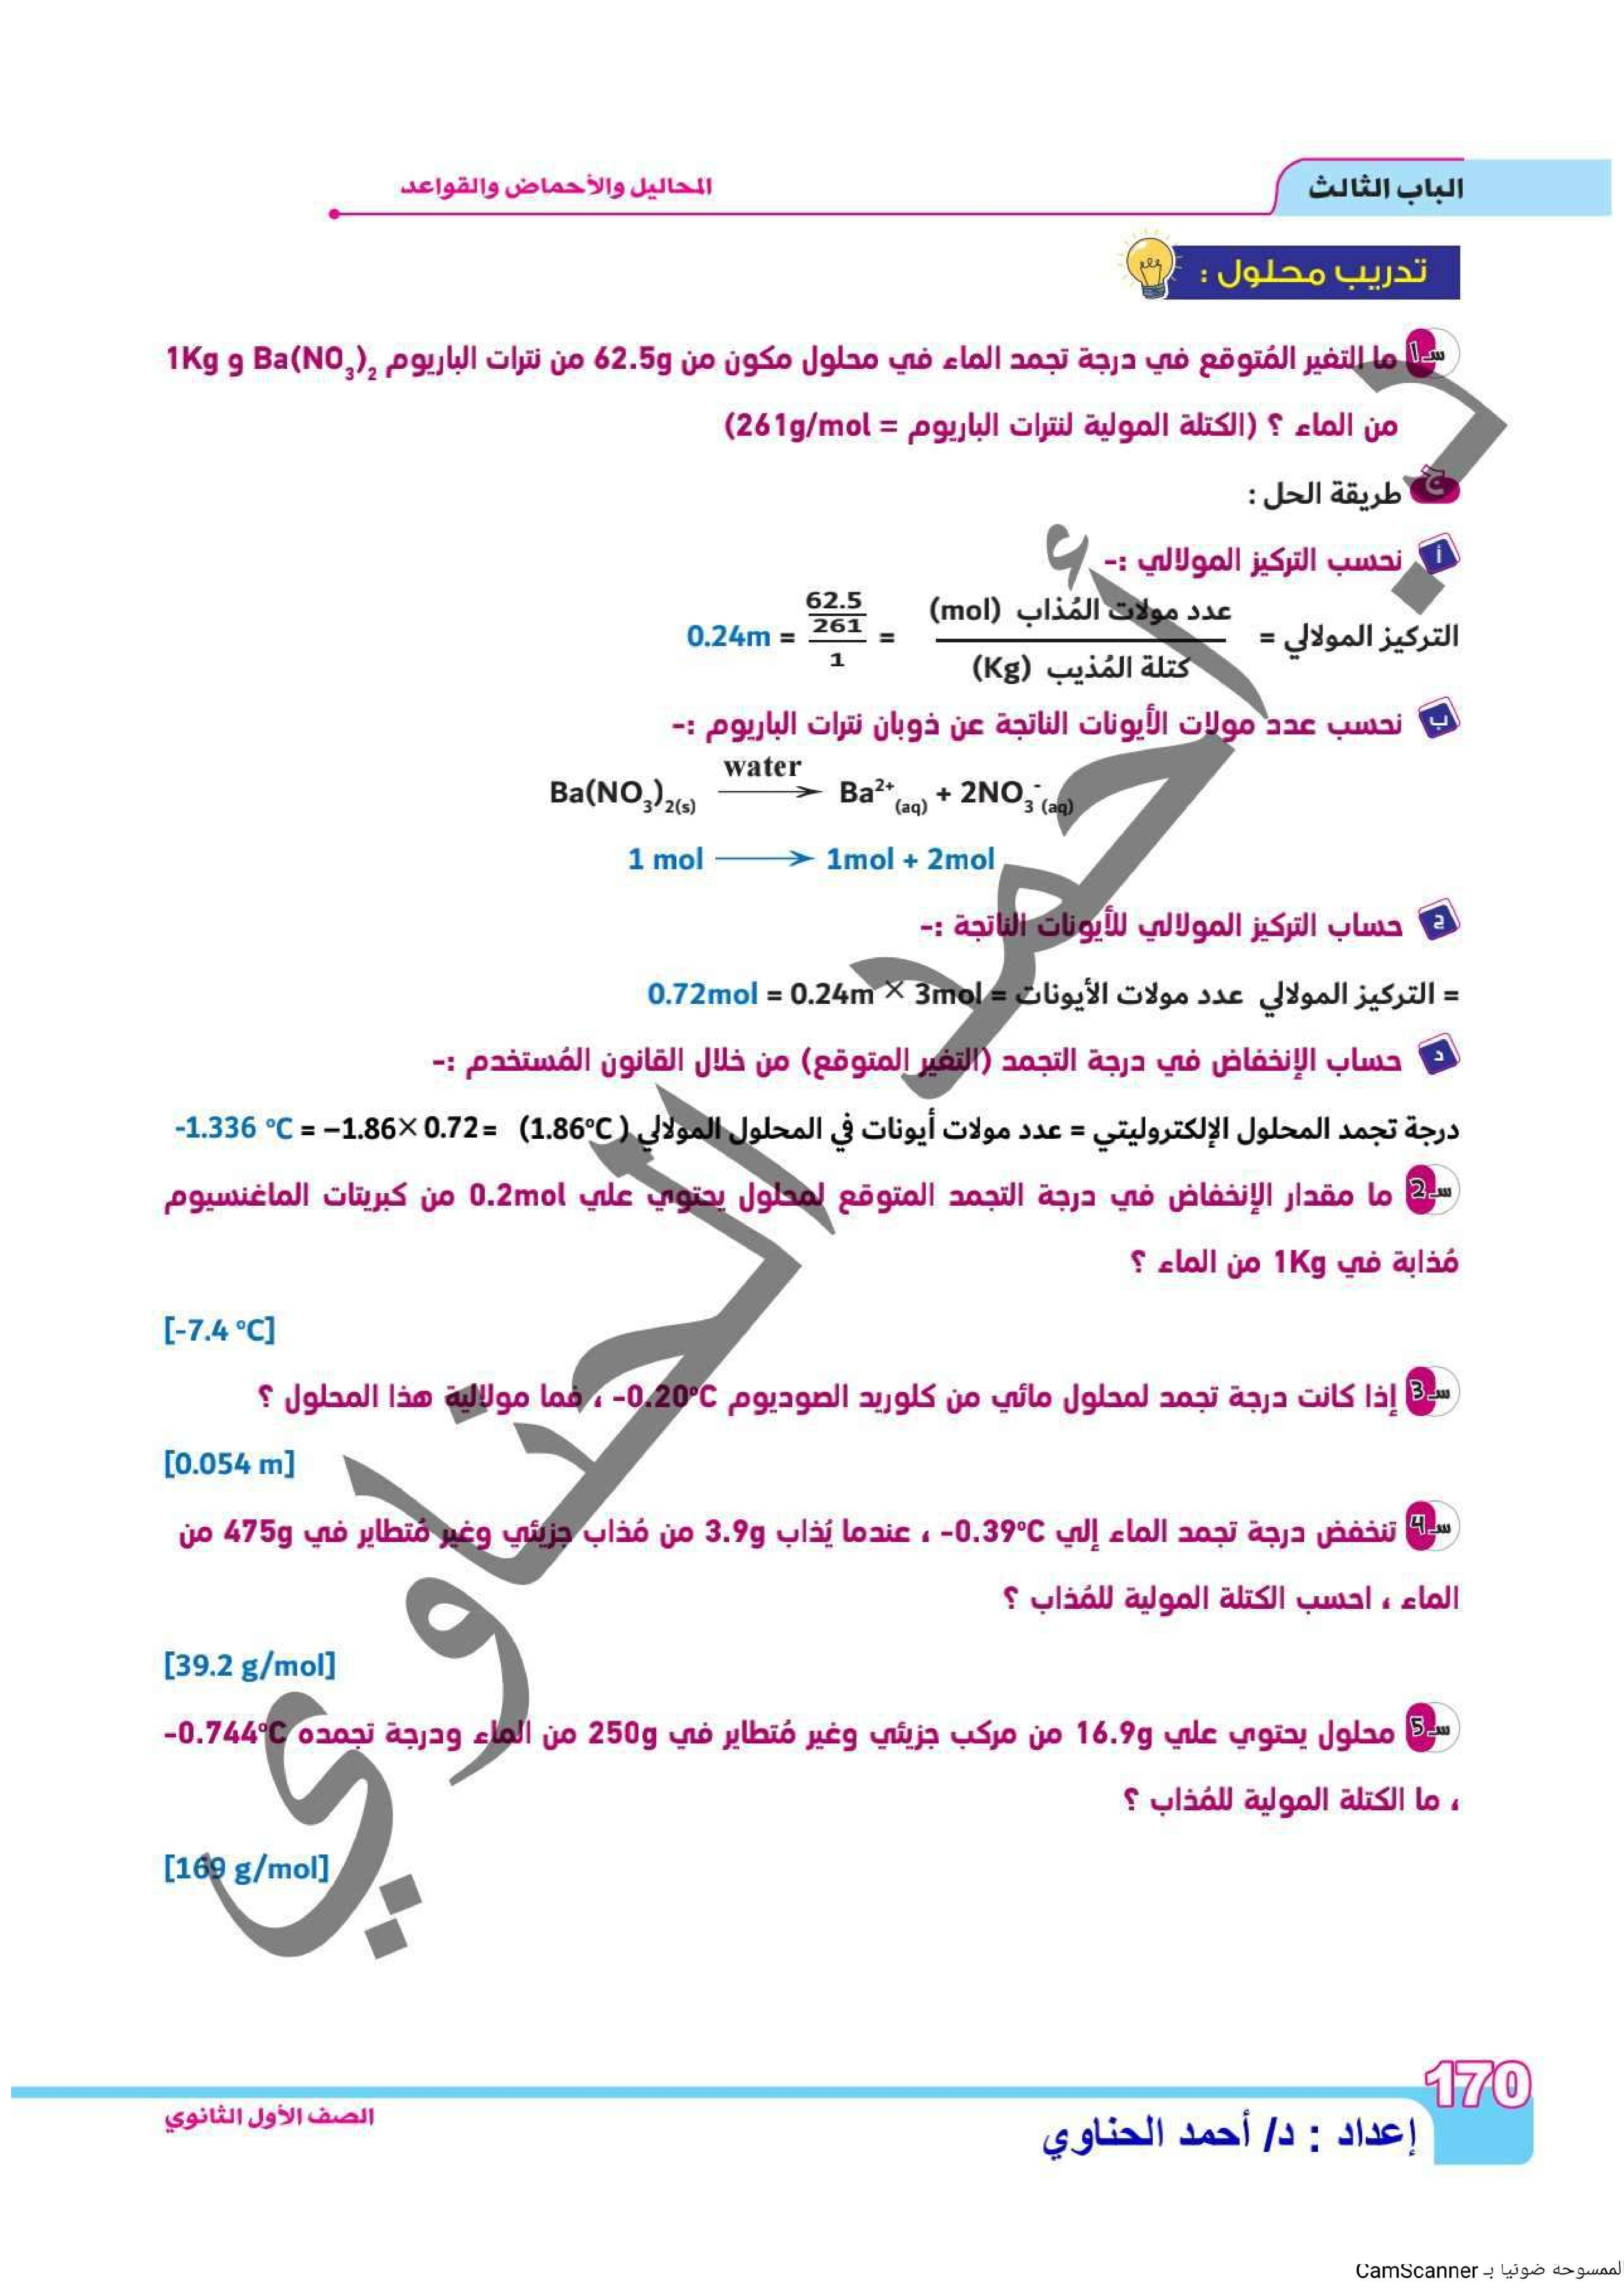 الباب الثالث
المحاليل والأحماض والقواعد
تدريب محلول :
سـ1 ما التغير المُتوقع في درجة تجمد الماء في محلول مكون من 62.5g من نترات الباريوم Ba(NO₃)₂ و 1Kg
من الماء ؟ (الكتلة المولية لنترات الباريوم = 261g/mol)
ج طريقة الحل :
أ نحسب التركيز المولالي :-
التركيز المولالي = عدد مولات المُذاب (mol) / كتلة المُذيب (Kg) = (62.5/261)/1 = 0.24m
ب نحسب عدد مولات الأيونات الناتجة عن ذوبان نترات الباريوم :-
water
Ba(NO₃)₂(s) ⟶ Ba²⁺(aq) + 2NO₃⁻(aq)
1 mol ⟶ 1mol + 2mol
ج حساب التركيز المولالي للأيونات الناتجة :-
= التركيز المولالي عدد مولات الأيونات = 0.72mol = 0.24m × 3mol
د حساب الإنخفاض في درجة التجمد (التغير المتوقع) من خلال القانون المُستخدم :-
درجة تجمد المحلول الإلكتروليتي = عدد مولات أيونات في المحلول المولالي (1.86°C) = -1.336 °C = −1.86× 0.72
سـ2 ما مقدار الإنخفاض في درجة التجمد المتوقع لمحلول يحتوي علي 0.2mol من كبريتات الماغنسيوم
مُذابة في 1Kg من الماء ؟
[-7.4 °C]
سـ3 إذا كانت درجة تجمد لمحلول مائي من كلوريد الصوديوم -0.20°C ، فما مولالية هذا المحلول ؟
[0.054 m]
سـ4 تنخفض درجة تجمد الماء إلي -0.39°C ، عندما يُذاب 3.9g من مُذاب جزيئي وغير مُتطاير في 475g من
الماء ، احسب الكتلة المولية للمُذاب ؟
[39.2 g/mol]
سـ5 محلول يحتوي علي 16.9g من مركب جزيئي وغير مُتطاير في 250g من الماء ودرجة تجمده -0.744°C
، ما الكتلة المولية للمُذاب ؟
[169 g/mol]
د. أحمد الحناوي
170
الصف الأول الثانوي
إعداد : د/ أحمد الحناوي
لممسوحة ضوئيا بـ CamScanner